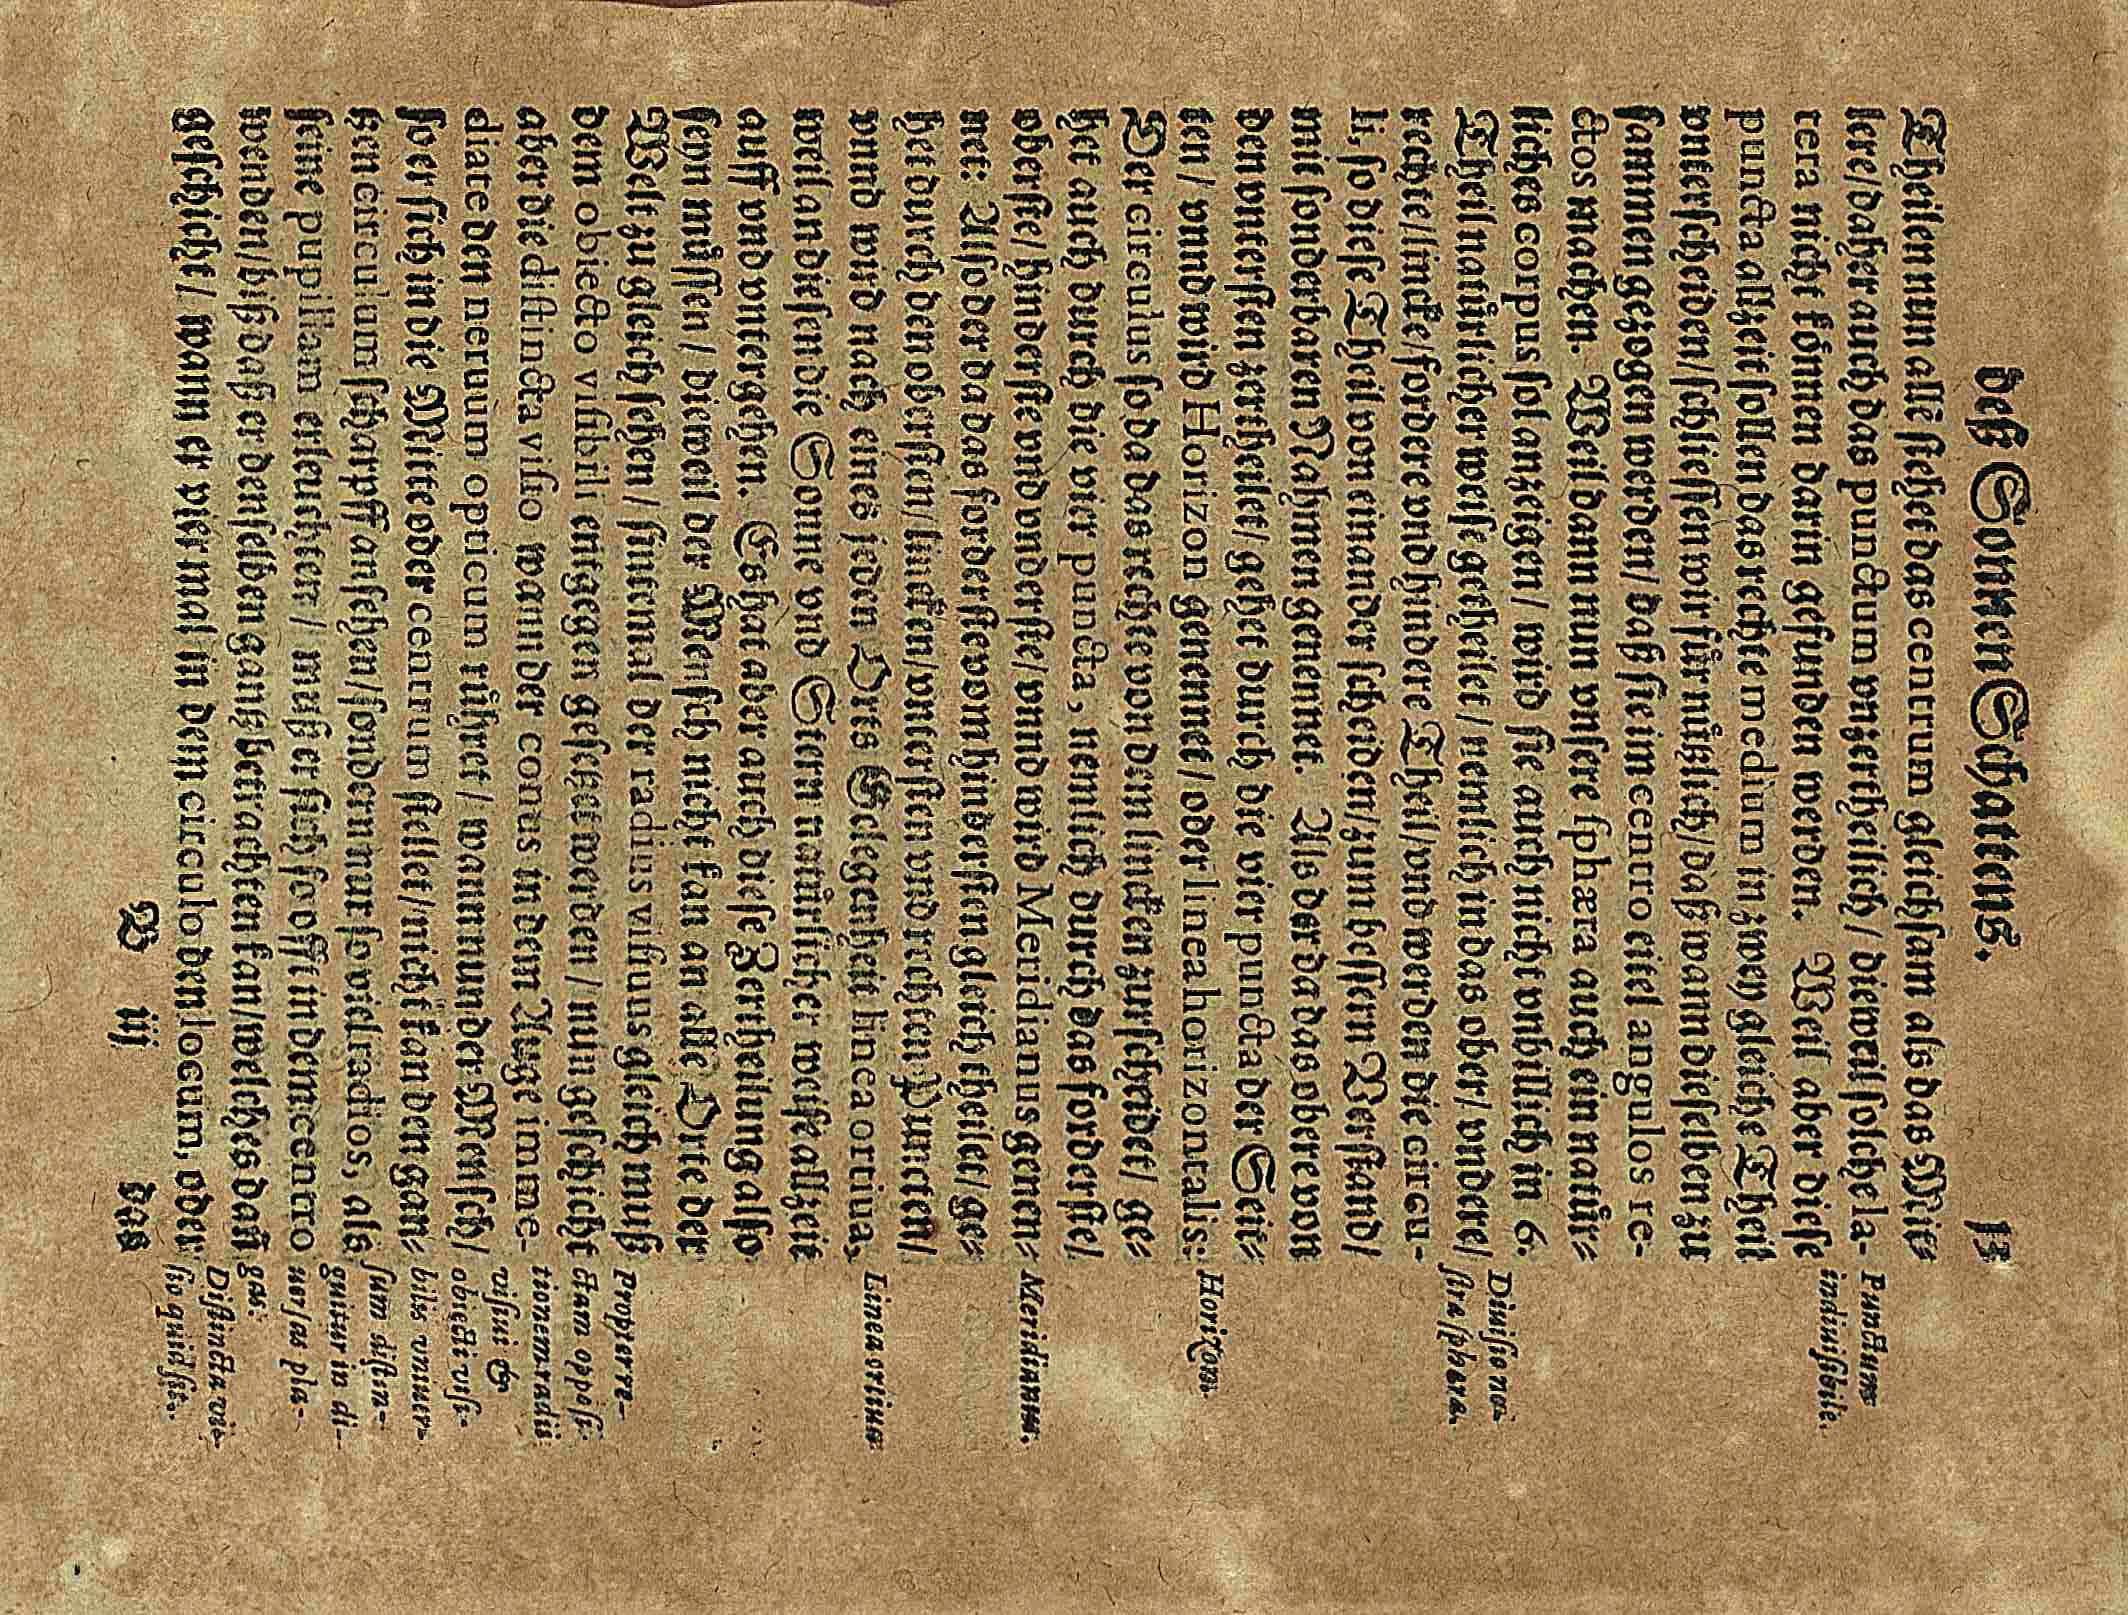 deß Sonnen Schattens. 13
Theilen nun alle stehet das centrum gleichsam als das Mit⸗
lere/ daher auch das punctum vnzertheilich/ dieweil solche la-
tera nicht können darin gefunden werden. Weil aber diese
puncta allzeit sollen das rechte medium in zwey gleiche Theil
vnterscheiden/ schliessen wir für nützlich/ daß wann dieselben zu
sammen gezogen werden/ daß sie im centro eitel angulos re-
ctos machen. Weil dann nun vnsere sphæra auch ein natür⸗
liches corpus sol anzeigen/ wird sie auch nicht vnbillich in 6.
Theil natürlicher weise getheilet/ nemlich in das ober/ vndere/
rechte/ lincke/ fordere vnd hindere Theil/ vnd werden die circu-
li, so diese Theil von einander scheiden/ zum bessern Verstand/
mit sonderbaren Nahmen genennet. Als der da das obere von
den vntersten zertheilet/ gehet durch die vier puncta der Seit⸗
ten/ vnnd wird Horizon genennet/ oder linea horizontalis:
Der circulus so da das rechte von dem lincken zerschneidet/ ge⸗
het auch durch die vier puncta, nemlich durch das forderste/
oberste/ hinderste vnd vnderste/ vnnd wird Meridianus genen⸗
net: Also der da das forderste vom hindersten gleich theilet/ ge⸗
het durch den obersten/ lincken/ vntersten vnd rechten Puncten/
vnnd wird nach eines jeden Orts Gelegenheit linea ortiua,
weil an diesen die Sonne vnd Stern natürlicher weise allzeit
auff vnd vntergehen. Es hat aber auch diese Zertheilung also
seyn müssen/ dieweil der Mensch nicht kan an alle Orte der
Welt zu gleich sehen/ sintemal der radius visuus gleich muß
dem obiecto visibili entgegen gesetzet werden/ nun geschicht
aber die distincta visio wann der conus in dem Auge imme-
diate den neruum opticum rühret/ wann nun der Mensch/
so er sich in die Mitte oder centrum stellet/ nicht kan den gan⸗
tzen circulum scharpff ansehen/ sondern nur so viel radios, als
seine pupillam erleuchten/ muß er sich so offt in dem centro
wenden/ biß daß er denselben gantz betrachten kan/ welches dañ
geschicht/ wann er vier mal in dem circulo den locum, oder
B iij das
Punctum
indiuisibile.
Diuisio no-
stræ sphæræ.
Horizon.
Meridianus.
Linea ortiua
Propter re-
ctam opposi-
tionem radii
visiui &
obiecti visi-
bilis vniuer-
sum distin-
guitur in di-
uersas pla-
gas.
Distincta vi-
sio quid sit.